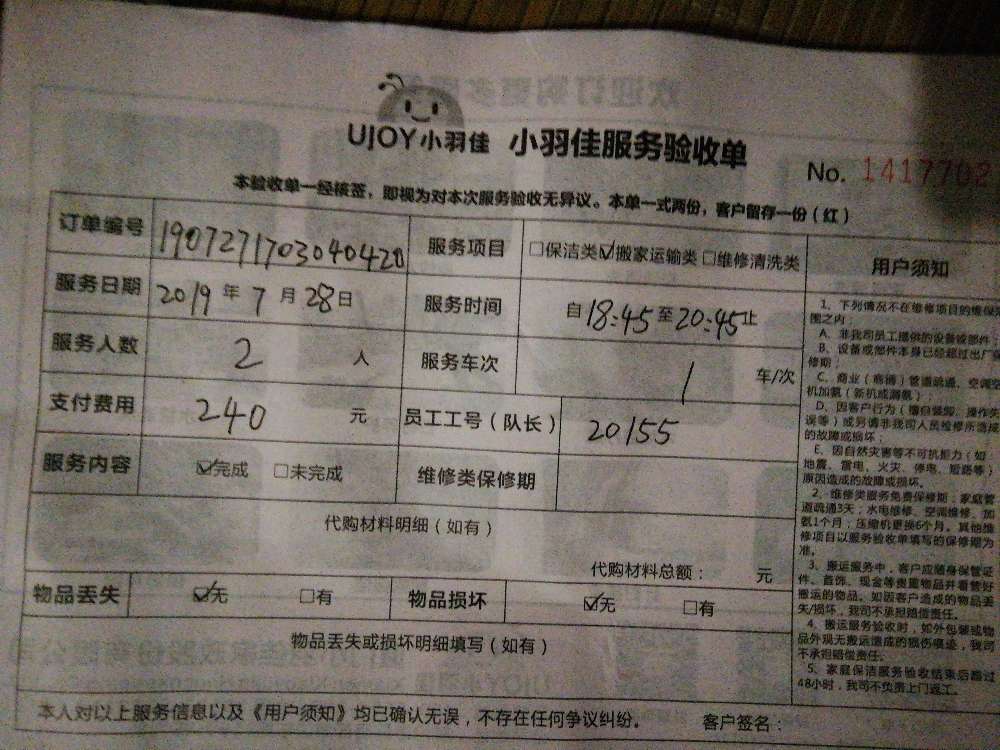 UJOY小羽佳 小羽佳服务验收单
No. 1417702
本验收单一经核签，即视为对本次服务验收无异议。本单一式两份，客户留存一份（红）
订单编号 1907271703040420 服务项目 □保洁类☑搬家运输类□维修清洗类
服务日期 2019年7月28日 服务时间 自18:45至20:45止
服务人数 2 人 服务车次 1 车/次
支付费用 240 元 员工工号（队长） 20155
服务内容 ☑完成 □未完成 维修类保修期
代购材料明细（如有）
代购材料总额： 元
物品丢失 ☑无 □有 物品损坏 ☑无 □有
物品丢失或损坏明细填写（如有）
本人对以上服务信息以及《用户须知》均已确认无误，不存在任何争议纠纷。 客户签名：
用户须知
1、下列情况不在维修项目的维保范
围之内：
A、非我司员工提供的设备或部件；
B、设备或部件本身已经超过出厂
修期；
C、商业（商博）管道疏通、空调
机加氨（新机或漏氨）；
D、因客户行为（擅自装卸、操作失
误等）或另请非我司人员检修所造成
的故障或损坏；
E、因自然灾害等不可抗拒力（如
地震、雷电、火灾、停电、短路等）
原因造成的故障或损坏。
2、维修类服务免费保修期：家庭管
道疏通3天；水电维修、空调维修、加
氨1个月；压缩机更换6个月。其他维
修项目以服务验收单填写的保修期为
准。
3、搬运服务中，客户应随身保管证
件、首饰、现金等贵重物品并看管好
搬运的物品。如因客户造成的物品丢
失/损坏，我司不承担赔偿责任。
4、搬运服务验收时，如外包装或物
品外观无搬运造成的损伤痕迹，我司
不承担赔偿责任。
5、家庭保洁服务验收结束后超过
48小时，我司不负责上门返工。